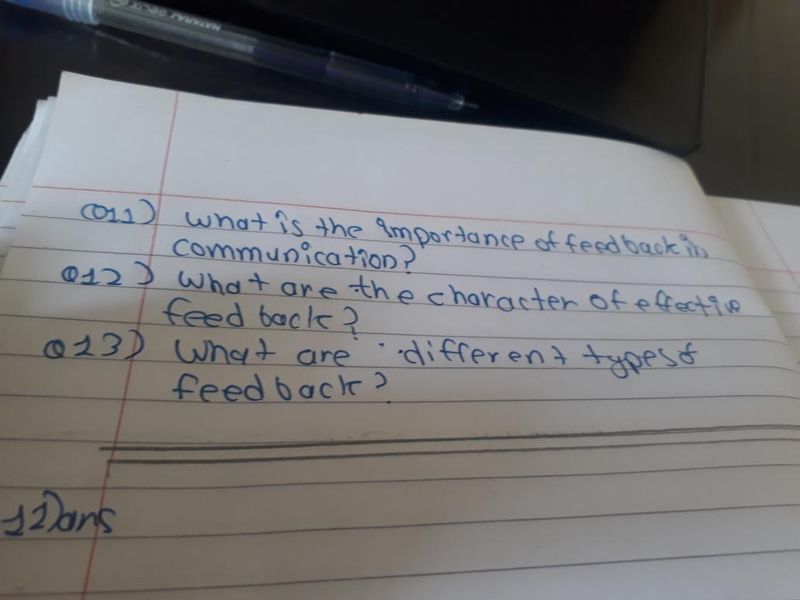 NATARAJ
Q11) What is the importance of feedback in
communication?
Q12) What are the character of effective
feedback?
Q13) What are different types of
feedback?
11)ans